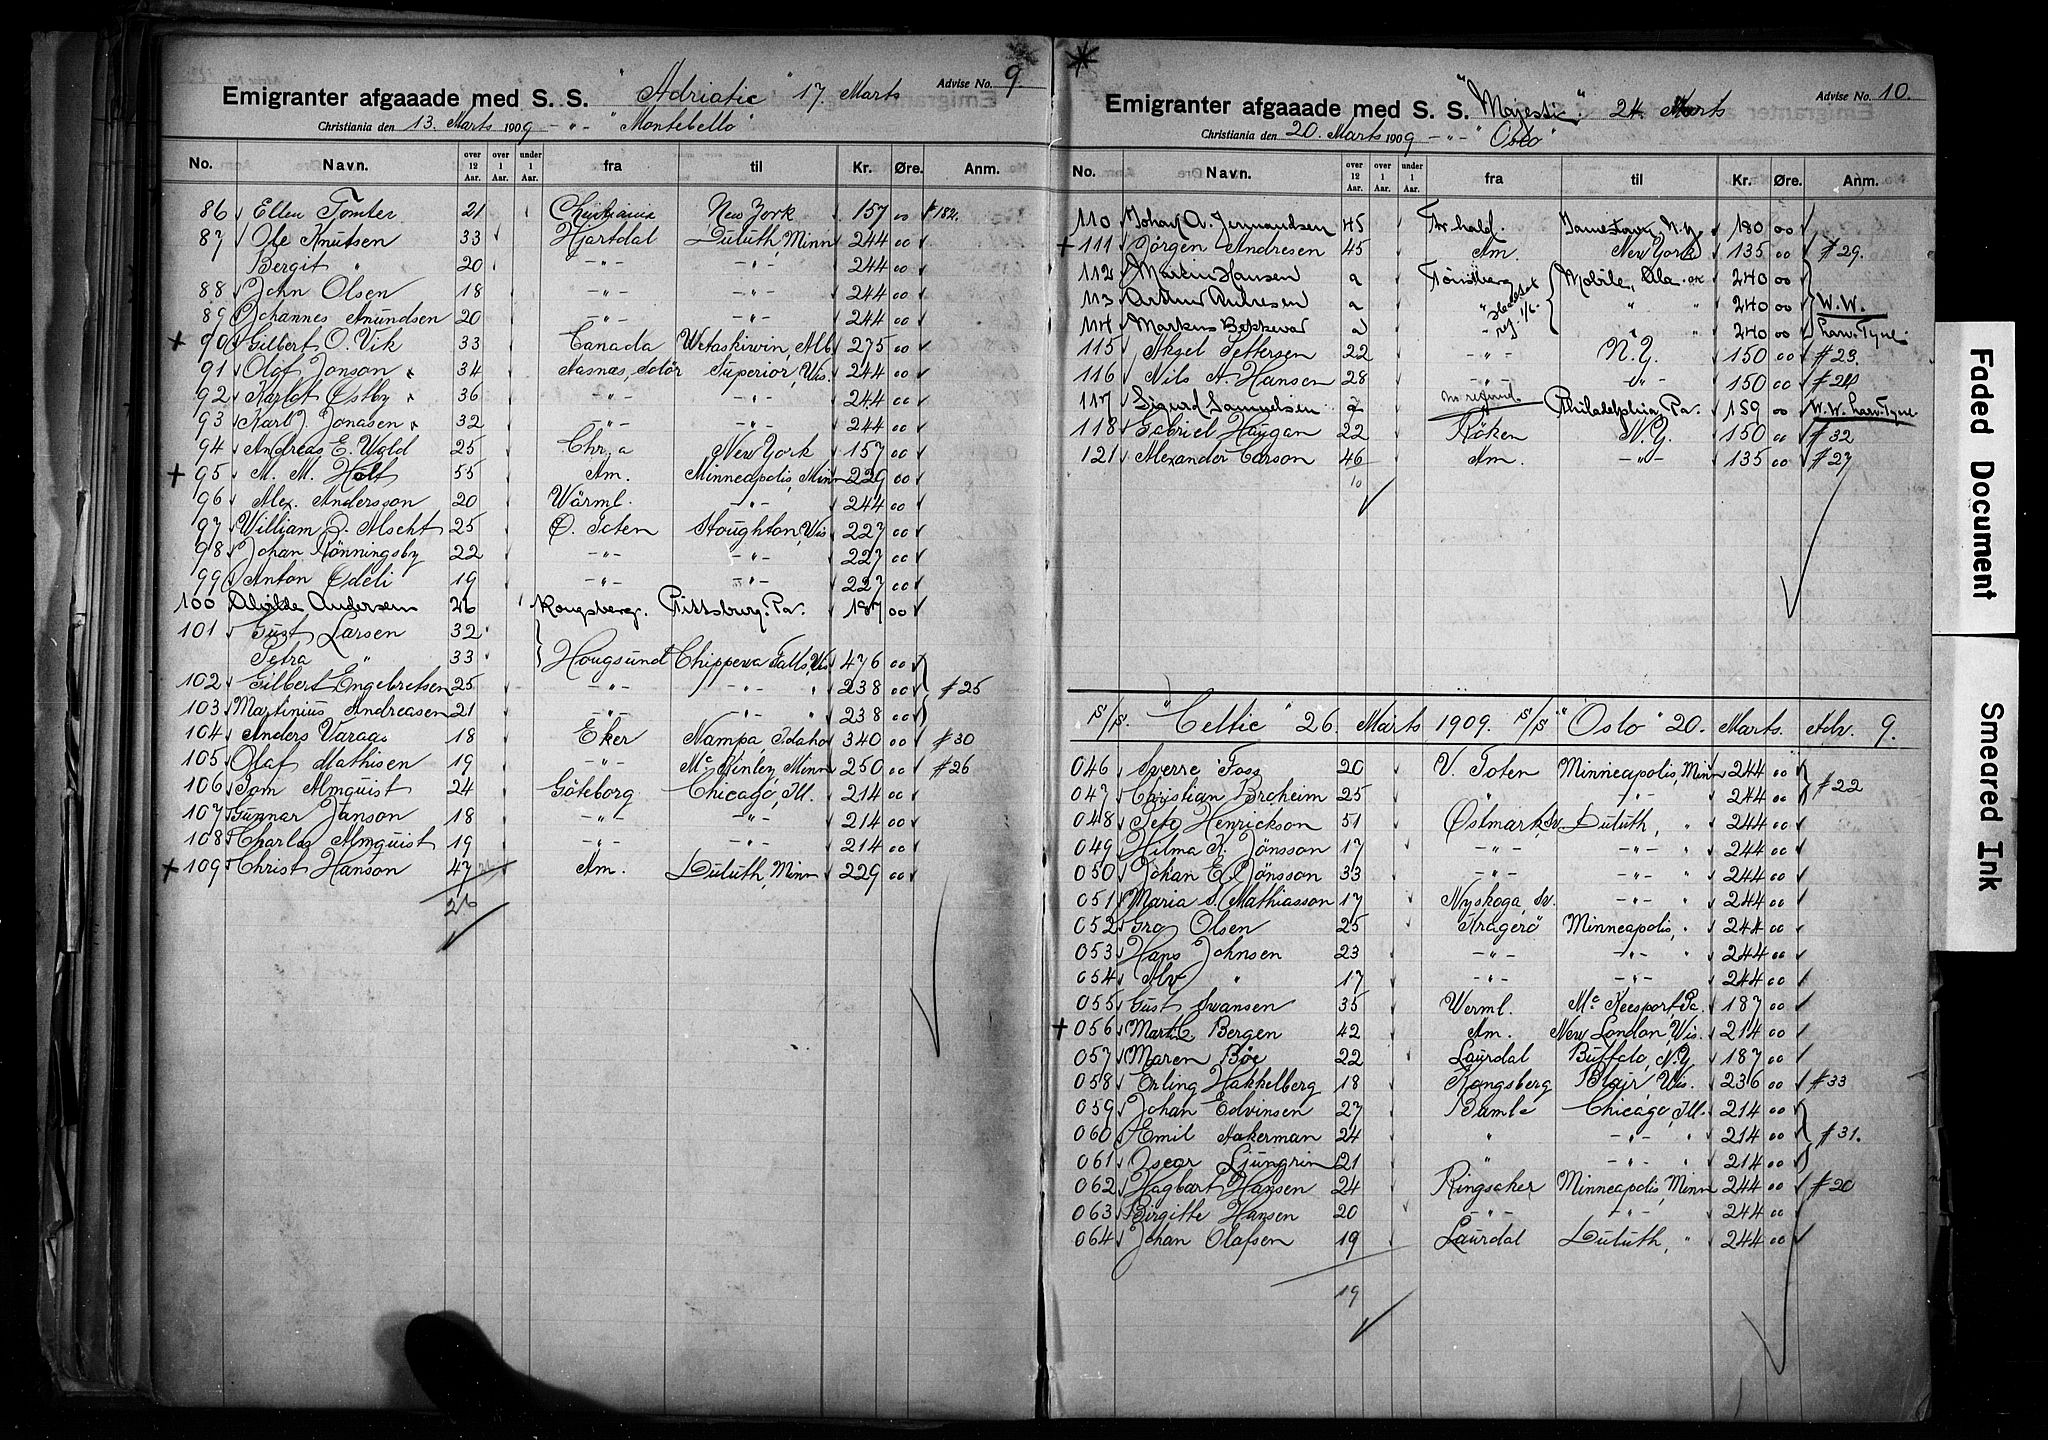 "Adriatic" 17. Marts Advise No. 9.
Emigranter afgaaade med S. S.
Christiania den 13. Marts 1909 - " - "Montebello"
No. Navn. over 12 Aar. over 1 Aar. under 1 Aar. fra til Kr. Øre. Anm.
86 Ellen Tomter 21 Christiania New York 157 00 #182.
87 Ole Knutsen 33 Hjartdal Duluth, Minn 244 00
Bergit " 20 - " - - " - 244 00
88 John Olsen 18 - " - - " - 244 00
89 Johannes Amundsen 20 - " - - " - 244 00
+ 90 Gilbert O. Vik 33 Canada Wetaskiwin, Alb. 275 00
91 Olof Jonson x 34 Aasnæs, Solör Superior, Wis. 244 00
92 Karlot Østby x 36 - " - - " - 244 00
93 Karl J. Jonasen x 32 - " - - " - 244 00
94 Andreas E. Wold 25 Chr.a New York 157 00
+ 95 M. M. Holt 55 Am. Minneapolis, Minn 229 00
96 Alex. Andersson 20 Wärml. - " - 244 00
97 William J. Alscht 25 Ø. Toten Stoughton, Wis 227 00
98 Johan Rönningsby 22 - " - - " - 227 00
99 Anton Ødeli 19 - " - - " - 227 00
100 Alvilde Andersen 26 Kongsberg. Pittsburg. Pa. 187 00
101 Gust Larsen 32
Petra " 33 Hougsund Chippewa Falls, Wis 476 00
102 Gilbert Engebretsen 25 - " - - " - " 238 00 #25
103 Martinius Andreasen 21 - " - - " - " 238 00
104 Anders Varaas 18 Eker Nampa, Idaho 340 00 #30
105 Olaf Mathisen 19 - " - Mc Kinley, Minn 250 00 #26
106 Tom Almquist 24 Göteborg Chicago, Ill. 214 00
107 Gunnar Janson 18 - " - - " - 214 00
108 Charles Almquist 19 - " - - " - 214 00
+ 109 Christ Hanson 47 Am. Duluth, Minn 229 00
26
"Majestic". 24 Marts Advise No. 10.
Emigranter afgaaade med S. S.
Christiania den 20. Marts 1909 - " - "Oslo"
No. Navn. over 12 Aar. over 1 Aar. under 1 Aar. fra til Kr. Øre. Anm.
110 Johan A. Jermandsen 45 Fr.hald. Jamestown, N.Y. 180 00
+ 111 Jörgen Andresen 45 Am. New York 135 00 #29.
112 Martin Hansen a Tönsberg Mobile, Ala. 240 00
113 Arthur Andresen a " " " 240 00 W.W.
114 Markus Bekkevar a " 1/6. " " 240 00 Larv. Tyne
115 Aksel Pettersen 22 - " - N.Y. 150 00 #23
116 Nils A. Hansen 28 - " - - " - 150 00 #24
117 Sigurd Samuelsen a Philadelphia, Pa. 159 00 W.W. Larv. Tyne
118 Gabriel Haugan 22 Röken N.Y. 150 00 #32
121 Alexander Carson 46 Am. - " - 135 00 #27
10
S/S. "Celtic" 26. Marts 1909. S/S "Oslo" 20. Marts. Adv. 9.
046 Sverre Foss 20 V. Toten Minneapolis, Minn 244 00
047 Christian Broheim 25 " - " - 244 00 #22
048 Pete Henrickson 51 Östmark, Sv. Duluth, " 244 00
049 Hilma K. Jönsson 17 - " - - " - " 244 00
050 Johan E. Jönsson 33 - " - - " - " 244 00
051 Maria S. Mathiasson 17 Nyskoga, Sv. - " - " 244 00
052 Gro Olsen 25 Kragerö Minneapolis, " 244 00
053 Hans Johnsen 23 - " - - " - " 244 00
054 Alv " 17 - " - - " - 244 00
055 Gust Swansen 35 Werml. Mc Keesport, Pa. 187 00
+ 056 Bergen 42 Am. New London, Wis. 214 00
057 Maren Böe 22 Laurdal Buffalo, N.Y. 187 00
058 Erling Hakkelberg 18 Kongsberg Blair, Wis. 236 00 #33
059 Johan Edvinsen 27 Bamle Chicago, Ill. 214 00
060 Emil Aakerman 24 " - " - " 214 00 #31.
061 Oscar Ljungrin 21 " - " - " 214 00
062 Hagbart Hansen 24 Ringsaker Minneapolis, Minn 244 00 #20
063 Birgitte Hansen 20 - " - - " - 244 00
064 Johan Olafsen 19 Laurdal Duluth, " 244 00
19
Faded Document
Smeared Ink